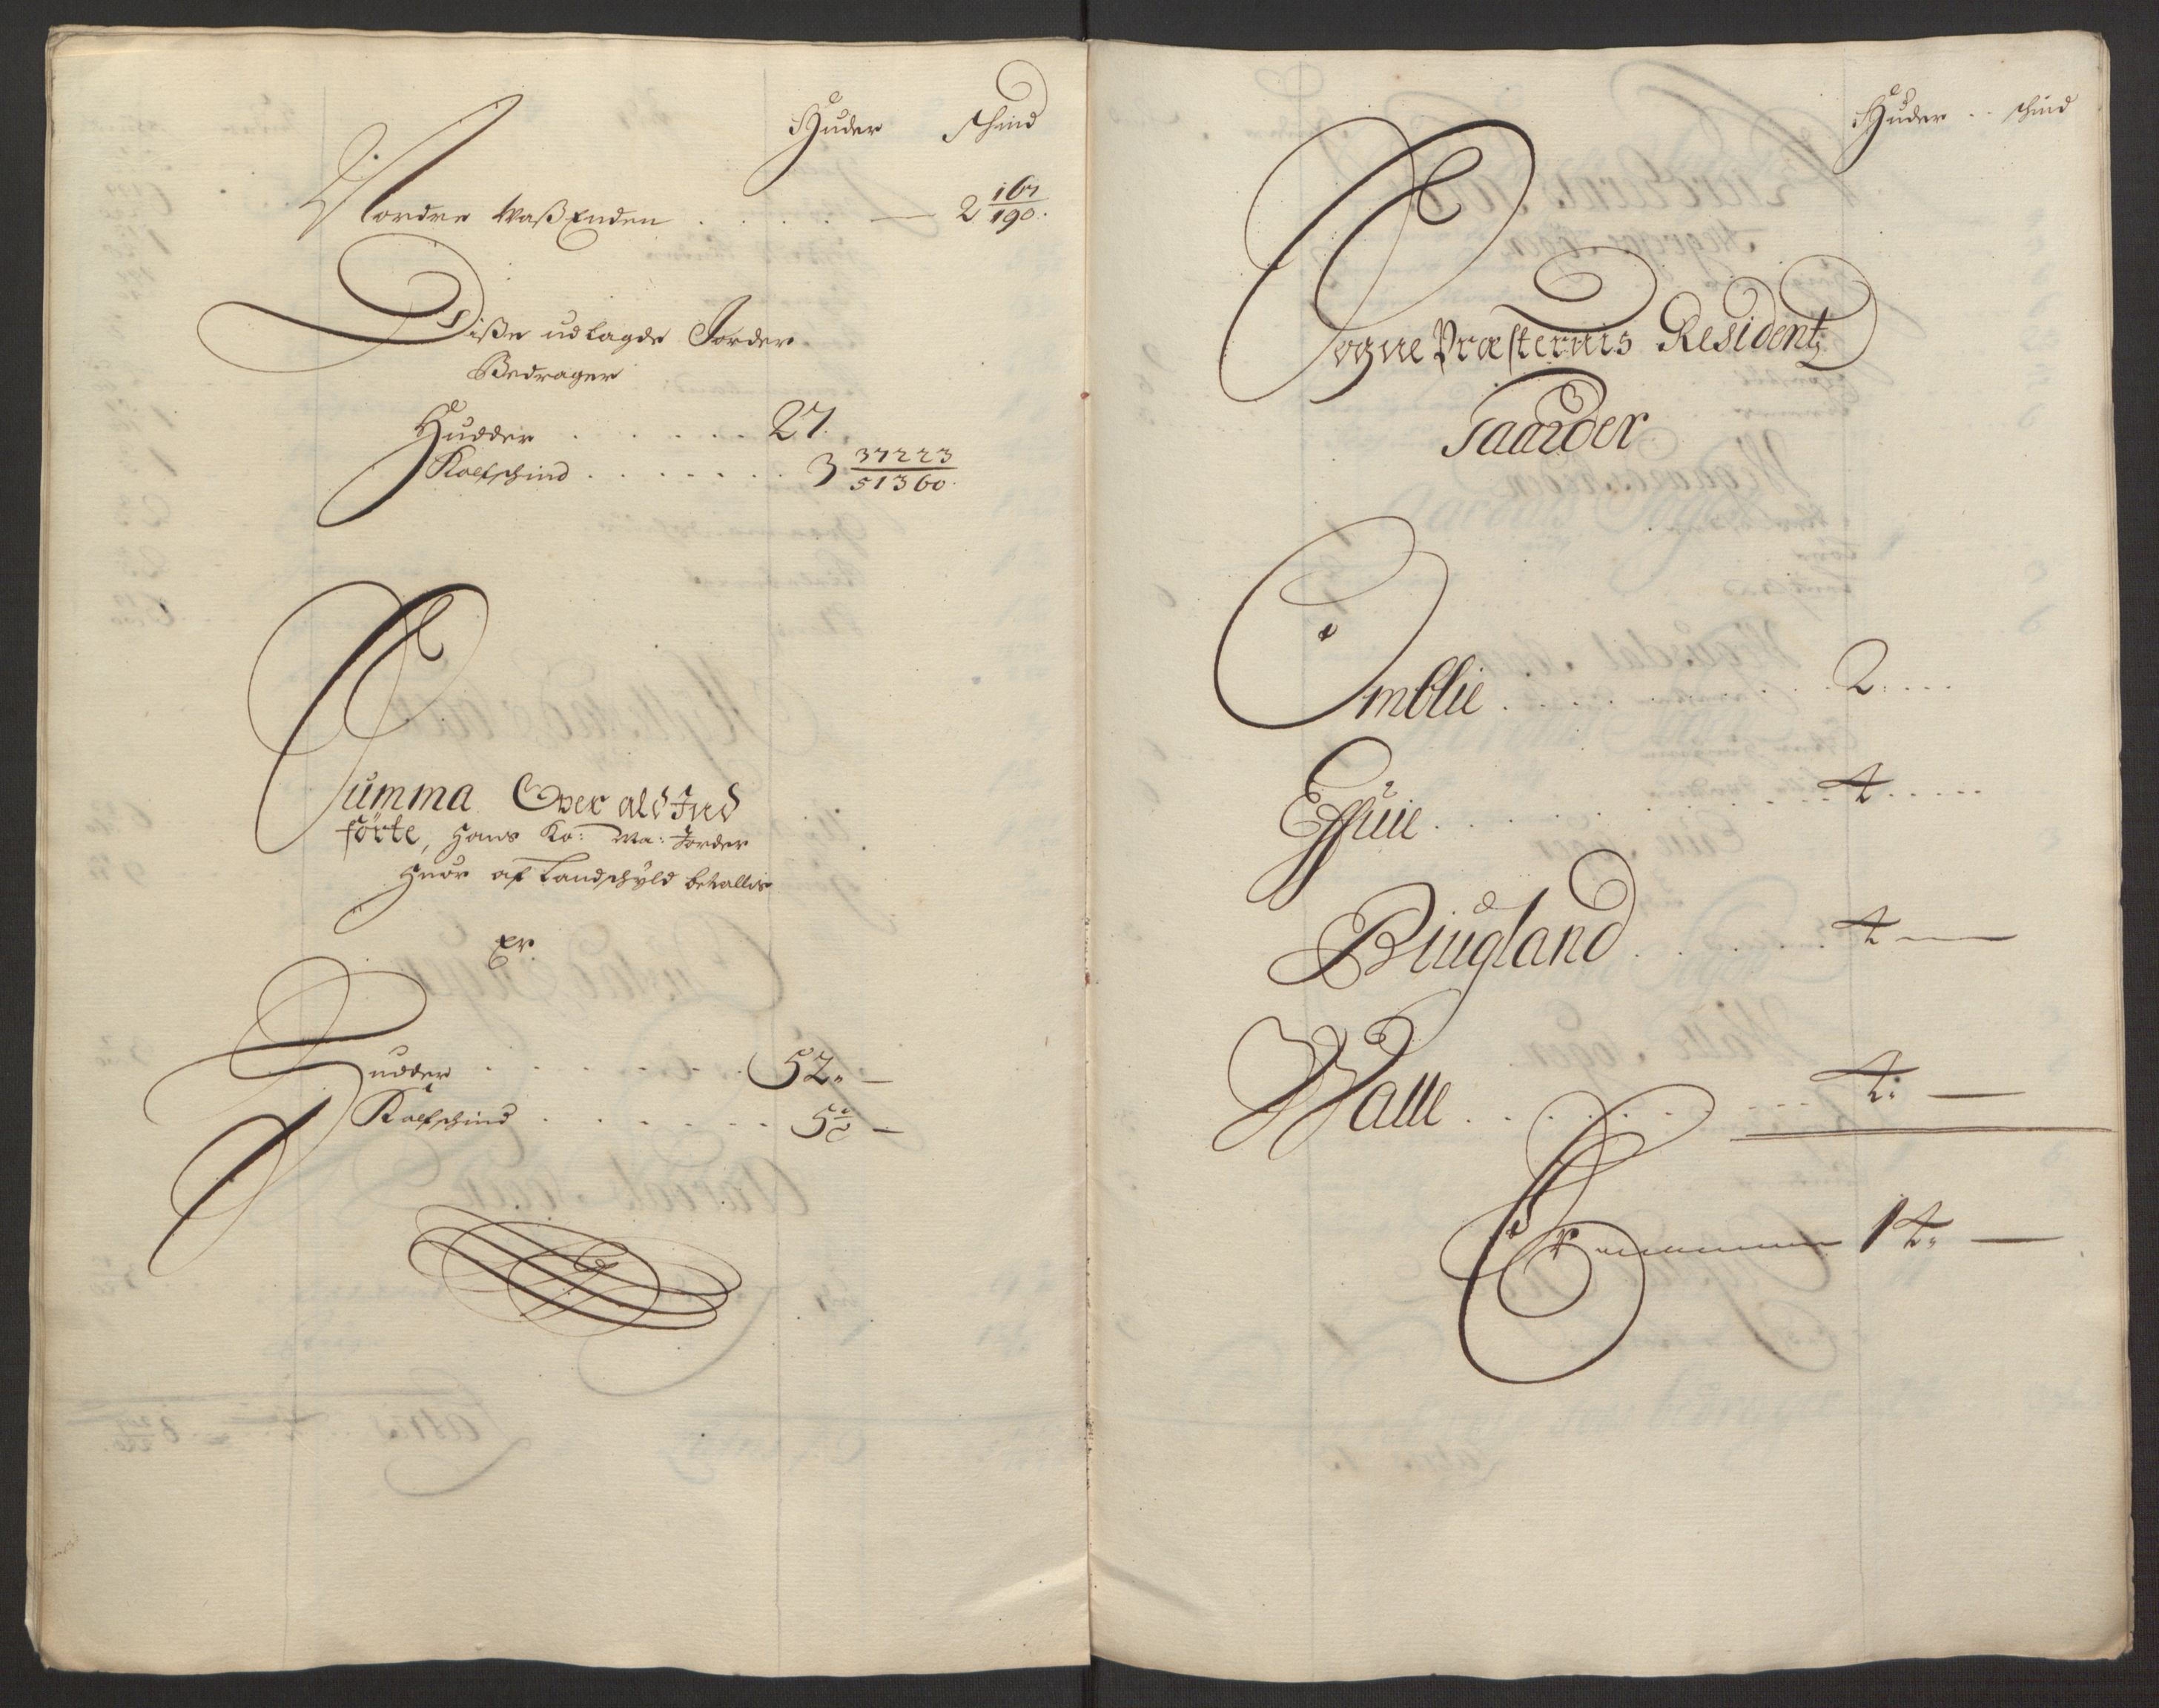 Huder Schind
Nordre WaßEnden . . . . — 2 167/190.
Disse udlagde Jorder
Bedrager
Hudder . . . . . . 27.
Kalfschind . . . . . . . 3 37223/51360.
Summa Over ald Ind
förte, Hans Ko: Ma: Jorder
Huor af Landschyld betallis
Er
Hudder . . . . . . . 52. —
Kalfschind . . . . . . —
Huder . . Schind
Sogne Præsternis Residentz
Gaarder
Omblie . . . . . . . . . 2. . . .
Effuie . . . . . . . . . 4 . . . . .
Biugland . . . . . . 4 —
Walle . . . . . . . . . . 4: —
Er 14. —